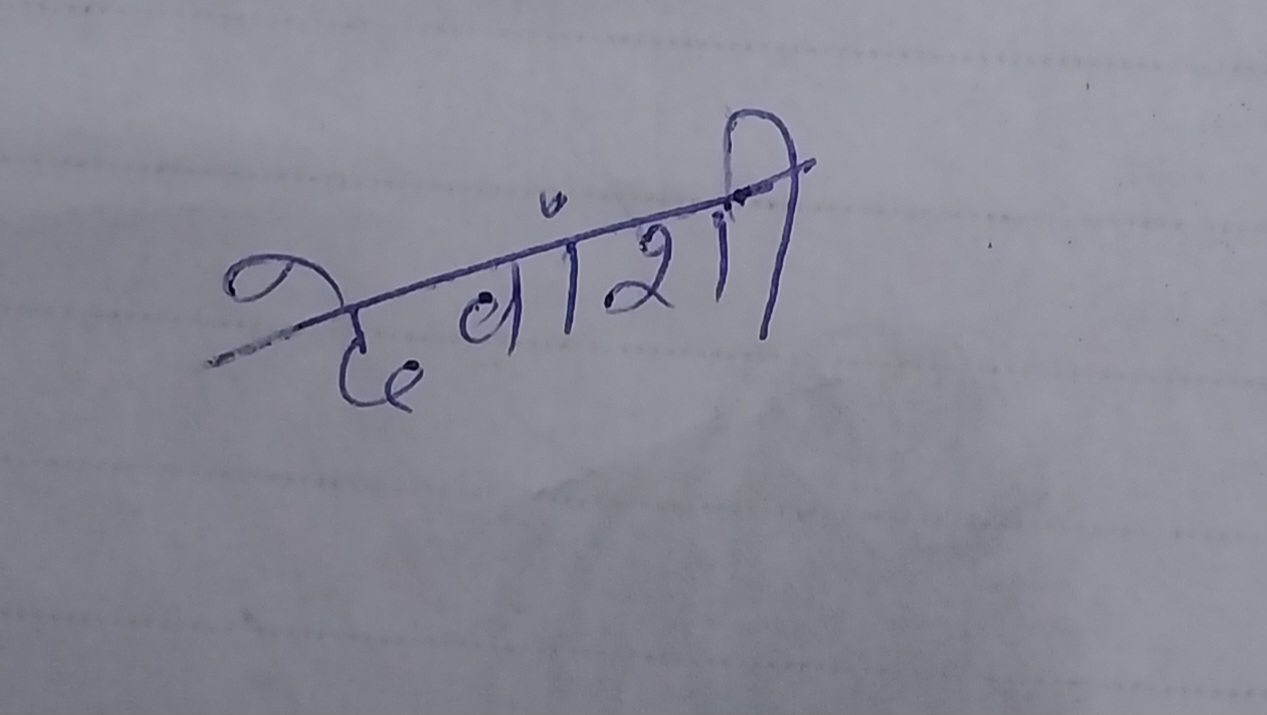 देवांशी